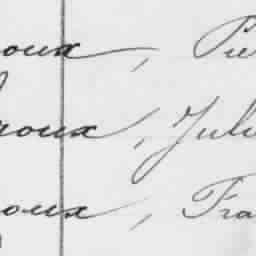 oux, Pie
roux, Juli
oux, Fra